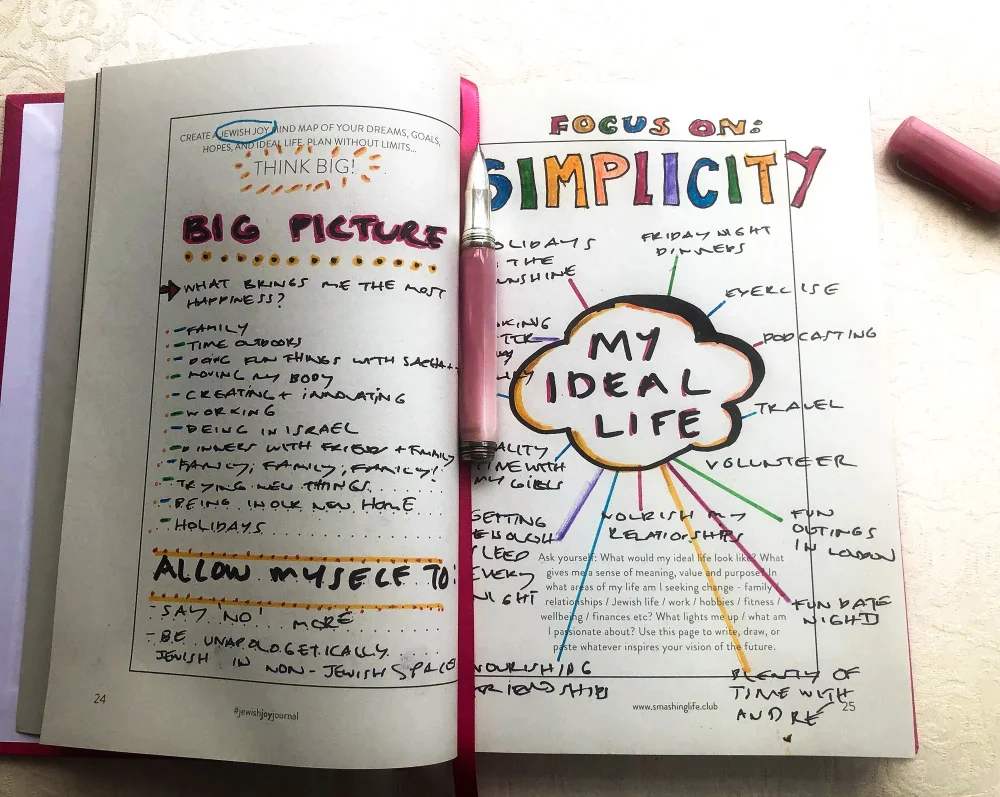 CREATE A JEWISH JOY MIND MAP OF YOUR DREAMS, GOALS,
HOPES, AND IDEAL LIFE. PLAN WITHOUT LIMITS...
THINK BIG!
BIG PICTURE
WHAT BRINGS ME THE MOST
HAPPINESS?
- FAMILY
- TIME OUTDOORS
- DOING FUN THINGS WITH SACHA +
- MOVING MY BODY
- CREATING + INNOVATING
- WORKING
- BEING IN ISRAEL
- DINNERS WITH FRIENDS + FAMILY
- FAMILY, FAMILY, FAMILY!
- TRYING NEW THINGS
- BEING IN OUR NEW HOME
- HOLIDAYS
ALLOW MYSELF TO:
- SAY 'NO' MORE
- BE UNAPOLOGETICALLY
JEWISH IN NON-JEWISH SPACE
24
#jewishjoyjournal
FOCUS ON:
SIMPLICITY
OLIDAYS
THE
NSHINE
FRIDAY NIGHT
DINNERS
EXERCISE
PODCASTING
TRAVEL
VOLUNTEER
FUN
OUTINGS
IN LONDON
FUN DATE
NIGHT
PLENTY OF
TIME WITH
ANDRÉ
NOURISH MY
RELATIONSHIPS
NOURISHING
FRIENDSHIPS
GETTING
ENOUGH
SLEEP
EVERY
NIGHT
ALITY
TIME WITH
MY GIRLS
KING
MY
IDEAL
LIFE
Ask yourself: What would my ideal life look like? What
gives me a sense of meaning, value and purpose? In
what areas of my life am I seeking change - family /
relationships / Jewish life / work / hobbies / fitness /
wellbeing / finances etc? What lights me up / what am
I passionate about? Use this page to write, draw, or
paste whatever inspires your vision of the future.
www.smashinglife.club
25